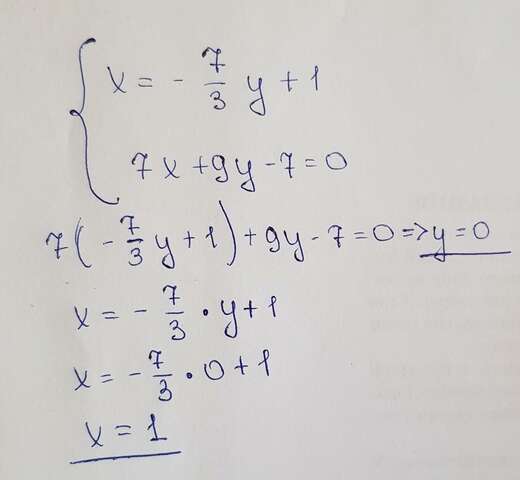 x = - 7/3 y + 1
7x + 9y - 7 = 0
7(- 7/3 y + 1) + 9y - 7 = 0 => y = 0
x = - 7/3 · y + 1
x = - 7/3 · 0 + 1
x = 1